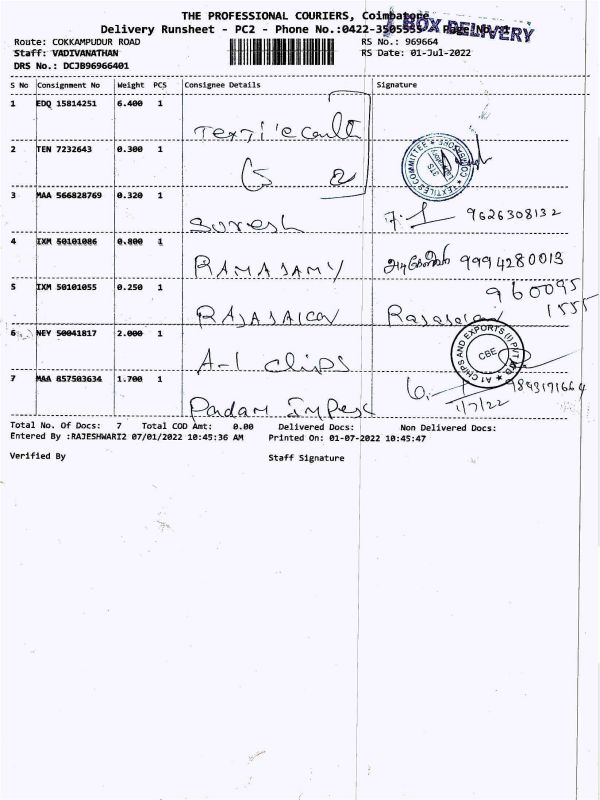 THE PROFESSIONAL COURIERS, Coimbatore
BOX DELIVERY
Delivery Runsheet - PC2 - Phone No.:0422-3505555
Route: COKKAMPUDUR ROAD
RS No.: 969664
Staff: VADIVANATHAN
RS Date: 01-Jul-2022
DRS No.: DCJB96966401
S No Consignment No Weight PCS Consignee Details Signature
1 EDQ 15814251 6.400 1
2 TEN 7232643 0.300 1
TEXTILES COMMITTEE
3 MAA 566828769 0.320 1
Suresh 9626308132
4 IXM 50101086 0.800 1
RAMASAMY 9994280013
5 IXM 50101055 0.250 1
960095
1555
6 NEY 50041817 2.000 1
A-1 chips
A1 CHIPS AND EXPORTS (I) PVT LTD
CBE
7 MAA 857503634 1.700 1
Padam Impex
1/7/22
Total No. Of Docs: 7 Total COD Amt: 0.00 Delivered Docs: Non Delivered Docs:
Entered By :RAJESHWARI2 07/01/2022 10:45:36 AM Printed On: 01-07-2022 10:45:47
Verified By Staff Signature